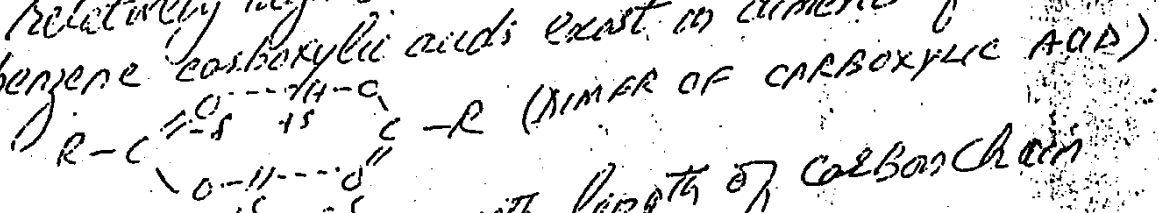 relatively
benzene carboxylic acids exist in dimeric
O-----H-O
R-C -δ +δ C-R (DIMER OF CARBOXYLIC ACID)
O-H----O
+δ -δ length of carbon chain